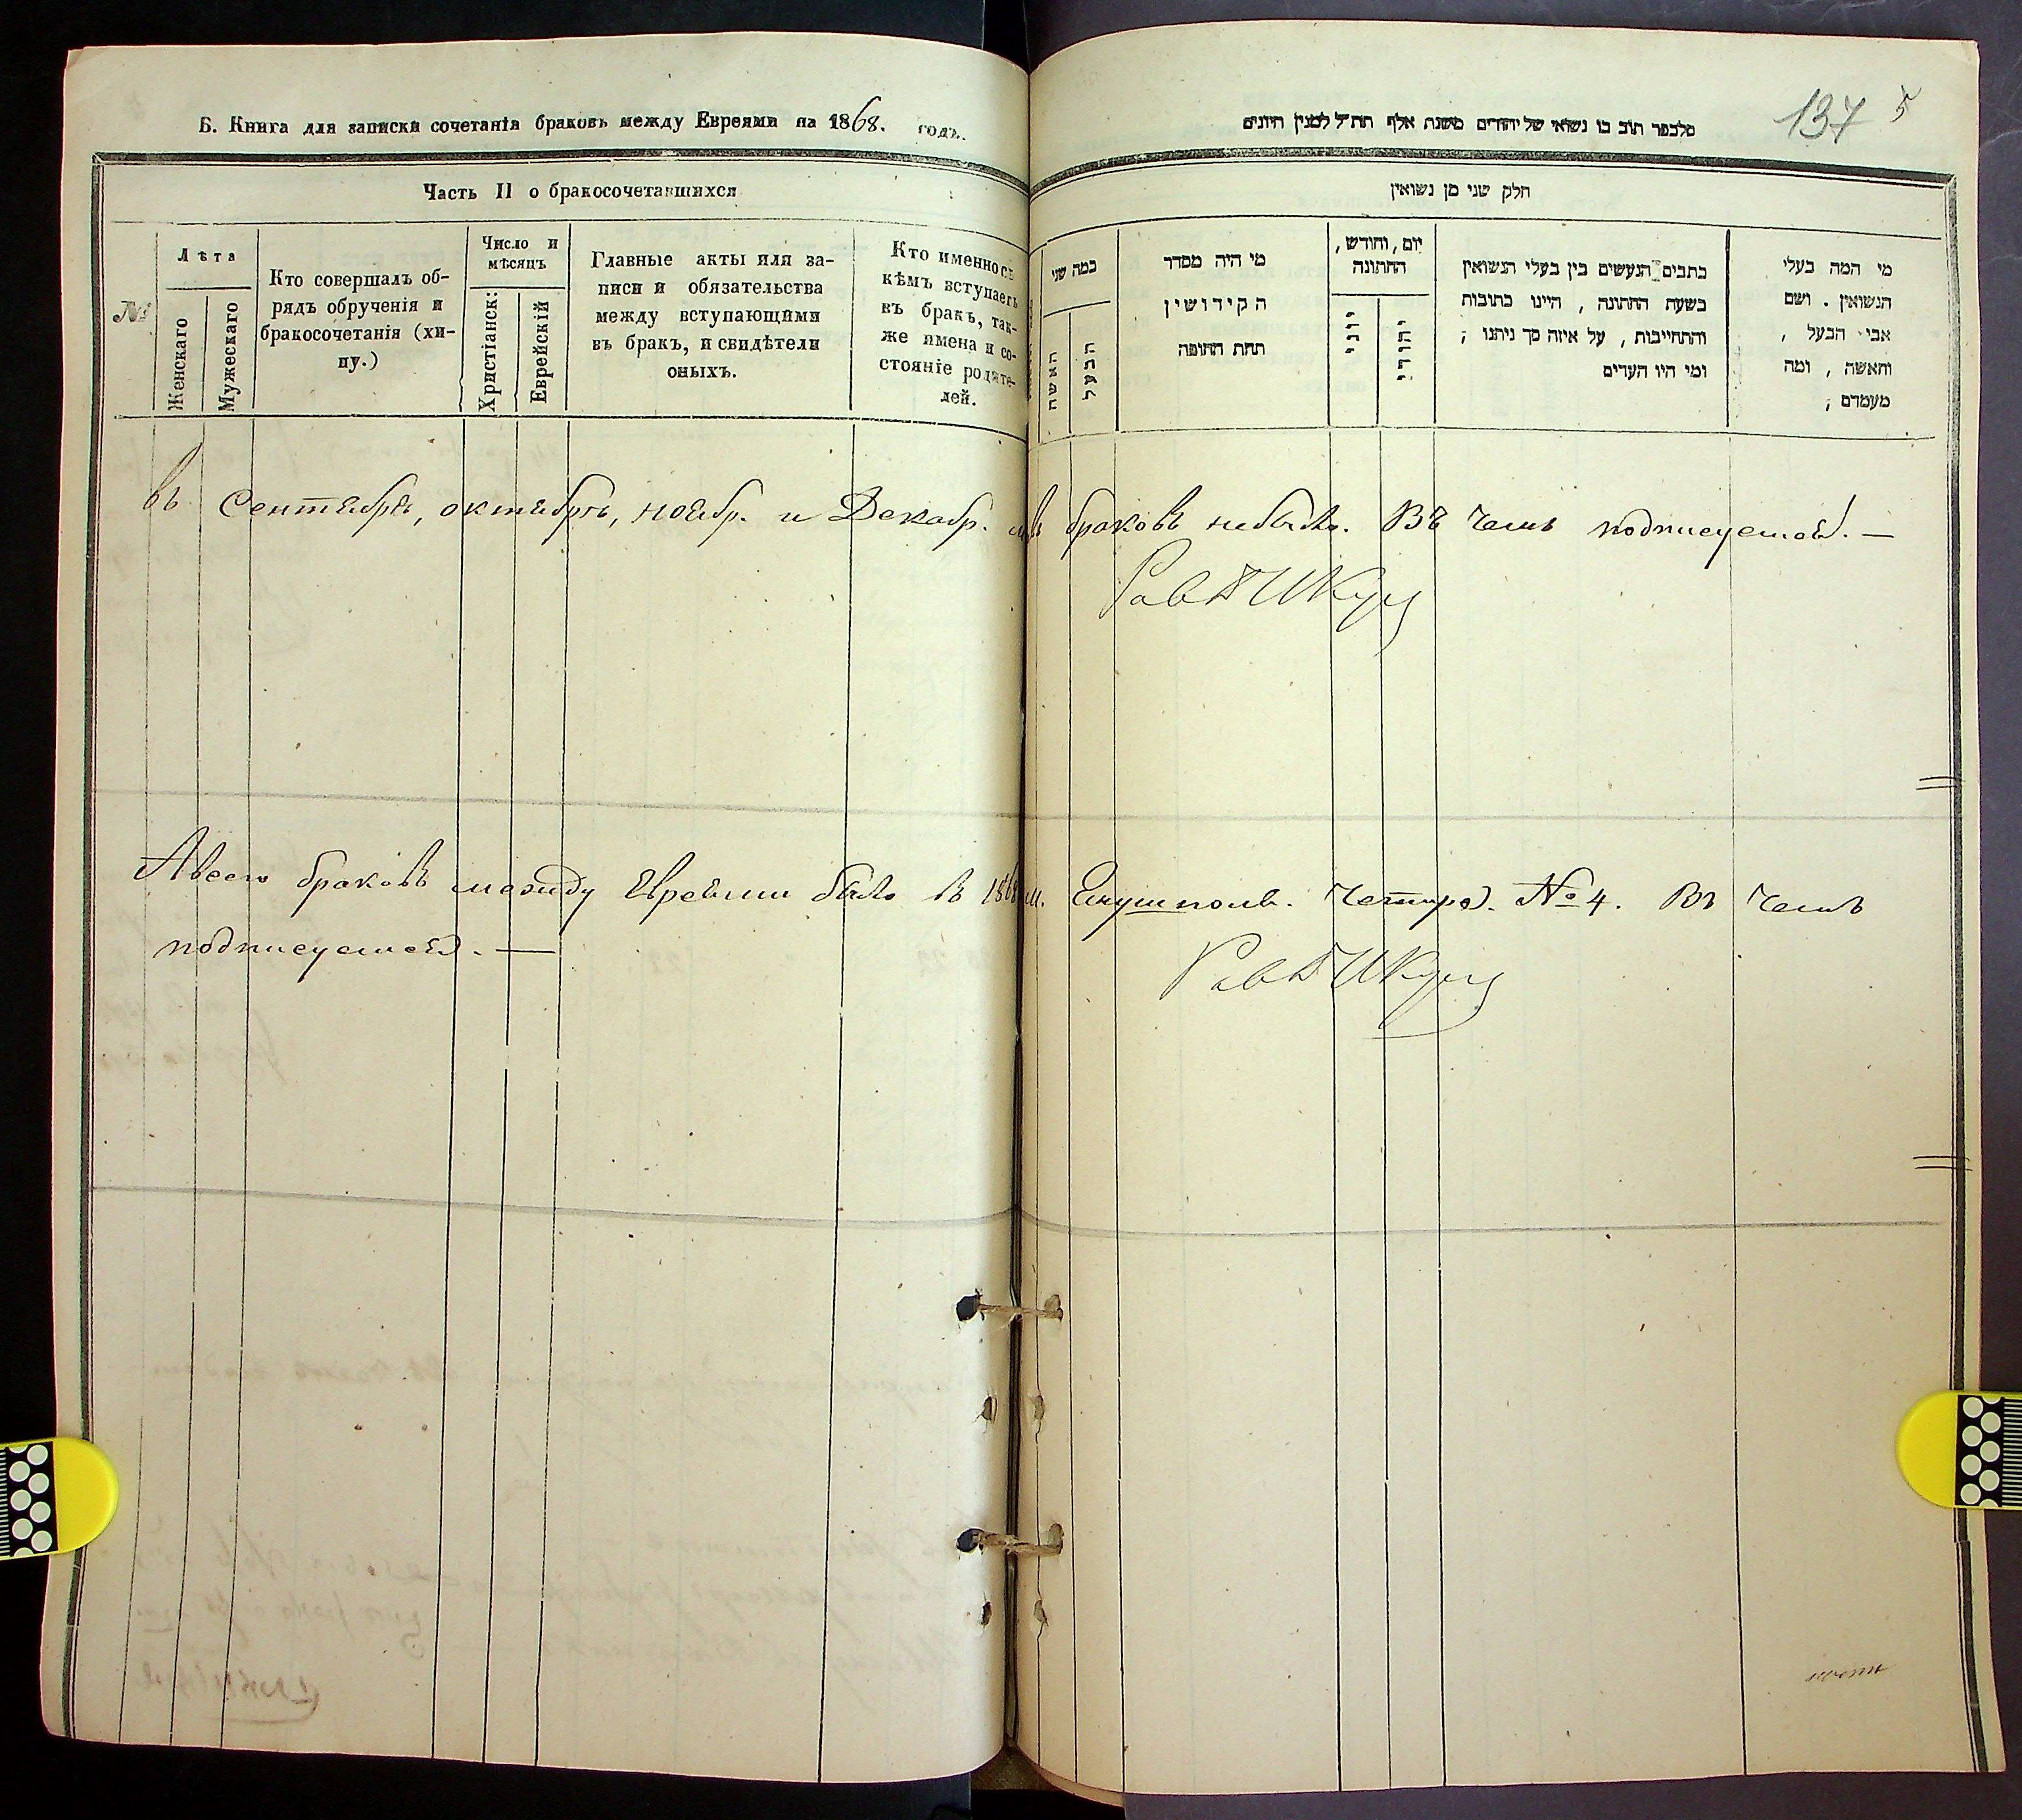 Б. Книга для записки сочетанія браковъ между Евреями на 1868. годъ.
Часть II о бракосочетавшихся
№
Лѣта
Женскаго
Мужескаго
Кто совершалъ об-
рядъ обрученія и
бракосочетанія (хи-
пу.)
Число и
мѣсяцъ
Христіанск:
Еврейскій
Главные акты или за-
писи и обязательства
между вступающими
въ бракъ, и свидѣтели
оныхъ.
Кто именно съ
кѣмъ вступаетъ
въ бракъ, так-
же имена и со-
стояніе родите-
лей.
137 5
מלבפר תוב בו נשואי של יהודים משנת אלף תת״ל למנין היונים
חלק שני מן נשואין
כמה שני
האשה
הבעל
מי היה מסדר
הקידושין
תחת החופה
יום, וחודש,
החתונה
יוני
יהודי
כתבים הנעשים בין בעלי הנשואין
בשעת החתונה, היינו כתובות
והתחייבות, על איזה סך ניתנו;
ומי היו העדים
מי המה בעלי
הנשואין. ושם
אבי הבעל,
והאשה, ומה
מעמדם;
въ Сентябрѣ, октябрѣ, ноябр. и Декабр. м-въ браковъ небыло. Въ чемъ подписуемся. —
Рав
Авсего браковъ между Евреями было въ 1868 м. четыре. № 4. Въ чемъ
подписуемся. —
Рав